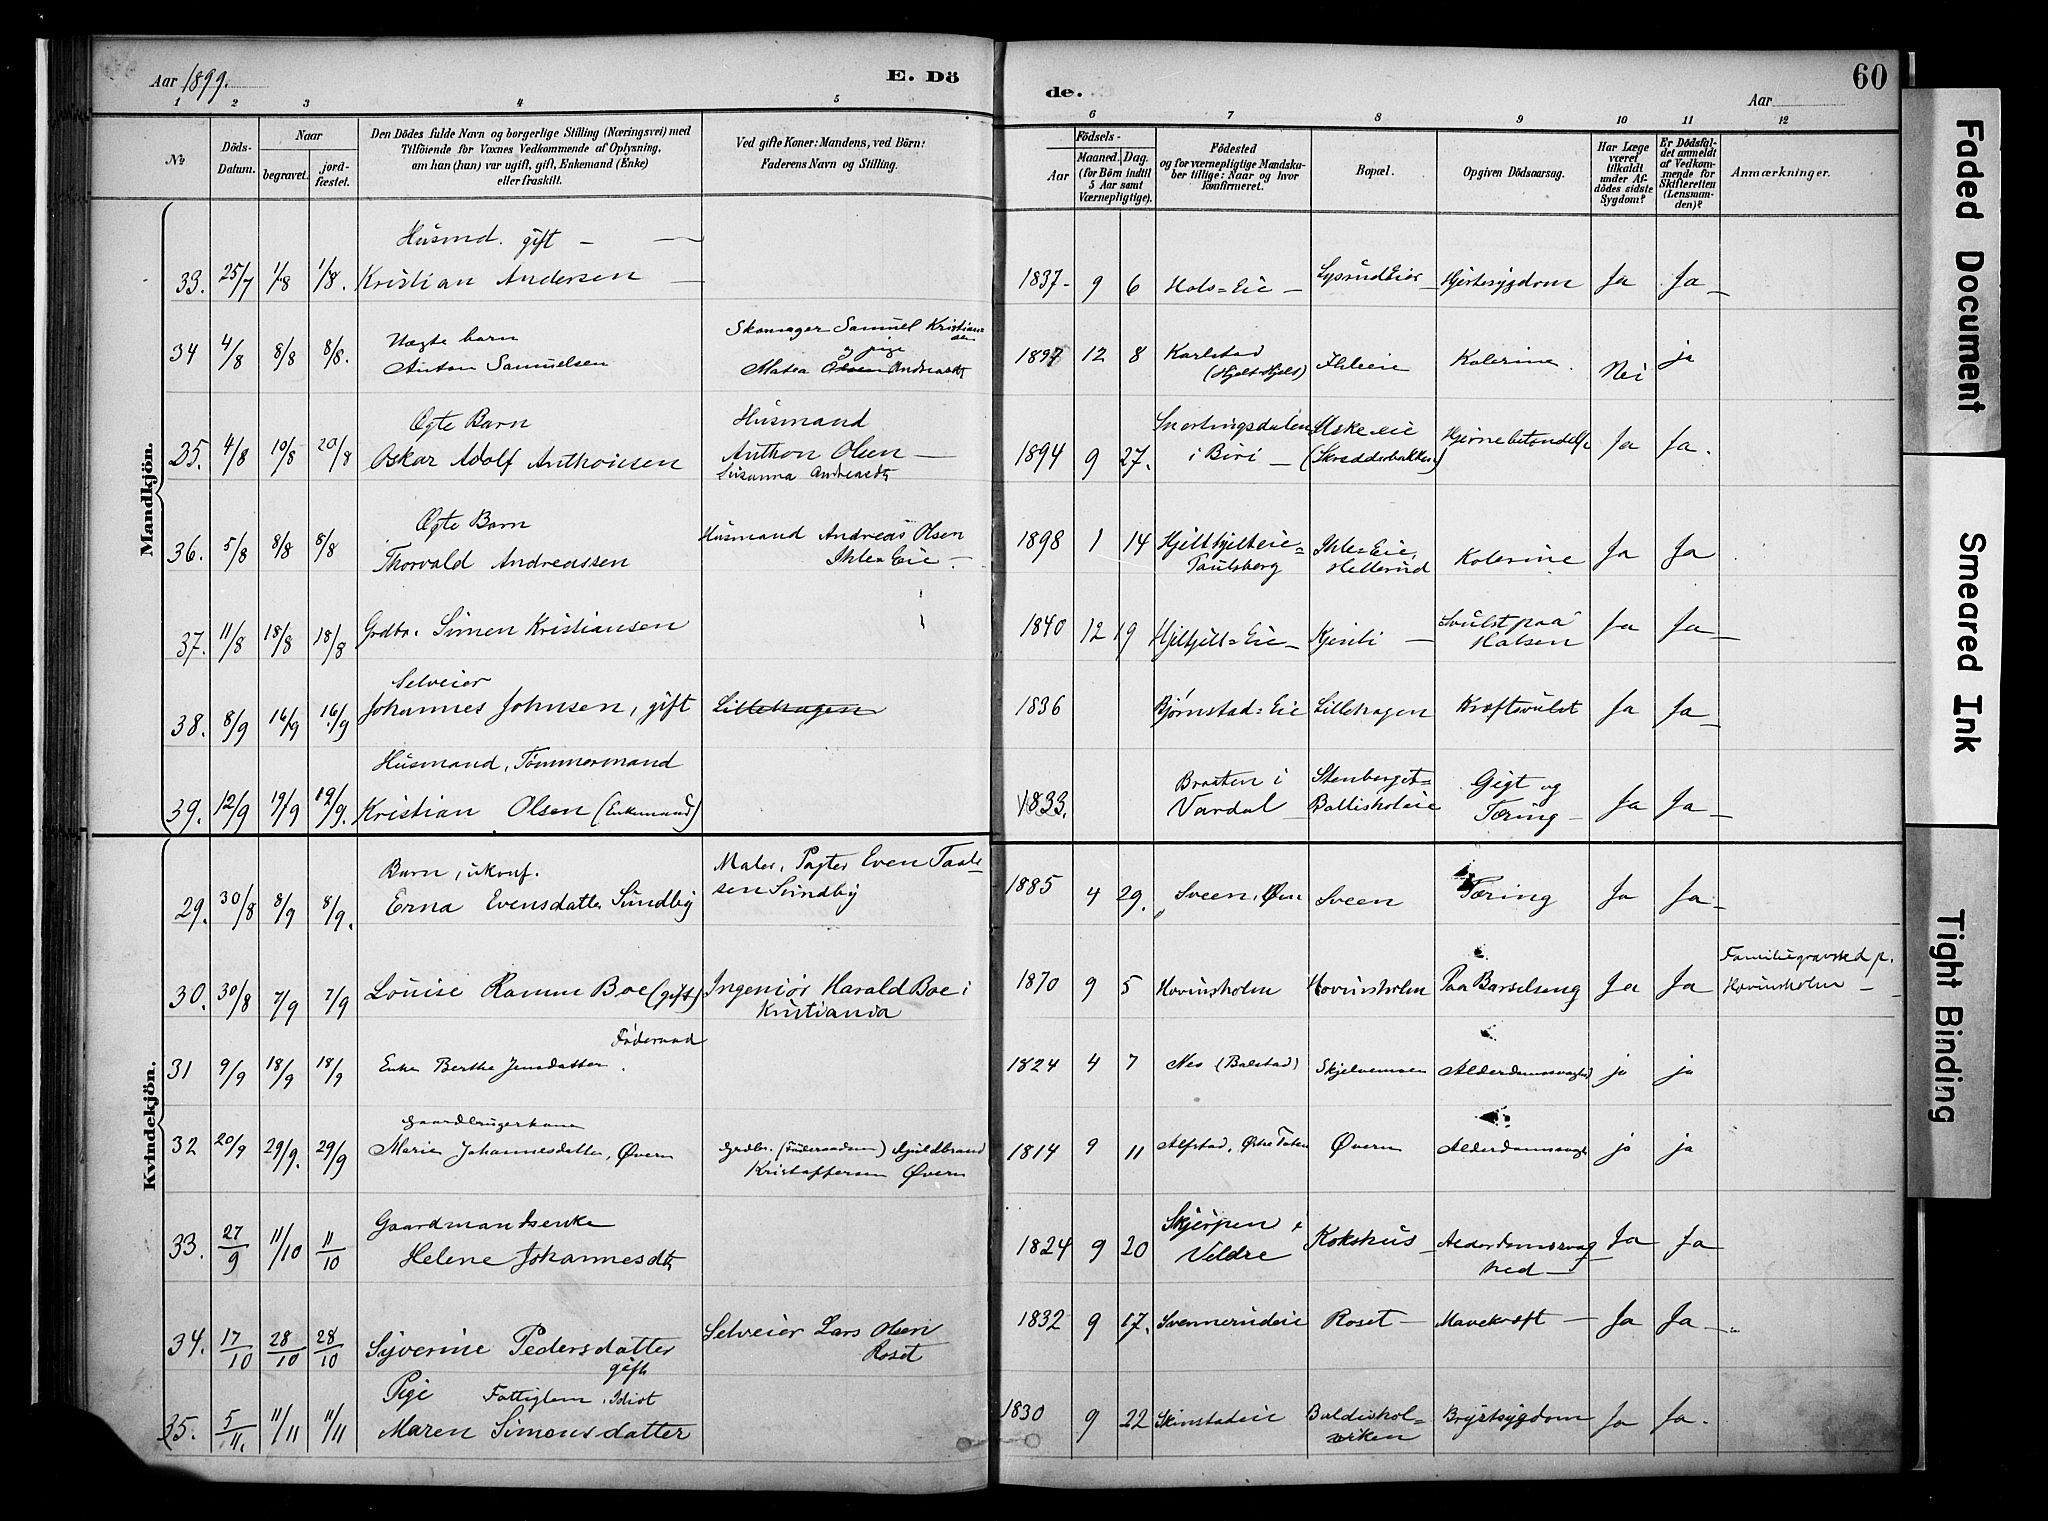 Aar 1899.
E. Dö
de.
Aar
60
1 2 3 4 5
6 7 8 9 10 11 12
No
Döds-Datum.
Naar
begravet.
jord-fæstet.
Den Dödes fulde Navn og borgerlige Stilling (Næringsvei) med
Tilföiende for Voxnes Vedkommende af Oplysning,
om han (hun) var ugift, gift, Enkemand (Enke)
eller fraskilt.
Ved gifte Koner: Mandens, ved Börn:
Faderens Navn og Stilling.
Födsels-
Aar
Maaned. Dag.
(for Börn indtil
5 Aar samt
Værnepligtige).
Födested
og for værnepligtige Mandska-
ber tillige: Naar og hvor
konfirmeret.
Bopæl.
Opgiven Dödsaarsag.
Har Læge
været
tilkaldt
under Af-
dödes sidste
Sygdom?
Er Dödsfal-
det anmeldt
af Vedkom-
mende for
Skifteretten
(Lensman-
den)?
Anmærkninger.
Mandkjön.
Husmd. gift —
33. 25/7 1/8 1/8. Kristian Andersen — 1837- 9 6 Hols=Eie — Lysrudeier Hjertesygdom Ja Ja —
Uægte barn Skomager Samuel Kristian=
sen
34 4/8 8/8 8/8. Anton Samuelsen og pige Matea Andreasdt 1897 12 8 Karlstad (Hjelt-Hjelt) Ihleeie Kolerine. Nei ja
Ægte Barn Husmand
35. 4/8 10/8 20/8 Oskar Adolf Anthonsen Anthon Olsen — 1894 9 27. Snertingsdalen i Biri — (Skrædderbakken) Hjernebetændelse Ja Ja.
Susanna Andreasdt
Ægte Barn
36. 5/8 8/8 8/8 Thorvald Andreassen Husmand Andreas Olsen Ihle=Eie. 1898 1 14 Hjelthjelteie= Paulsberg Ihle=Eie, Hellerud Kolerine Ja Ja
37. 11/8 18/8 18/8 Grdbr. Simen Kristiansen 1840 12 19 Hjelthjelt=Eie — Kjenli — Svulst paa Halsen Ja Ja —
Selveier
38. 8/9 16/9 16/9 Johannes Johnsen, gift Lillehagen 1836 Bjørnstad=Eie Lillehagen Kræftsvulst Ja Ja —
Husmand, Tømmermand
39. 12/9 19/9 19/9. Kristian Olsen (Enkemand) 1833. Braaten i Vardal Stenberget= Balliskoleie Gigt og Tæring — Ja Ja —
Kvindekjön.
Barn, ukonf. Maler, Pagter Even Paul-
29. 30/8 8/9 8/9. Erna Evensdatter Sundby sen Sundby 1885 4 29. Sveen, Øvre Sveen Tæring Ja Ja —
30. 30/8 7/9 7/9 Louise Ramm Boe (gift) Ingeniör Harald Boe i Kristiania 1870 9 5 Hovinsholm Hovinsholm Paa Barselseng Ja Ja Familiegravsted p. Hovinsholm —
Föderaad
31 9/9 18/9 18/9 Enke Berthe Jensdatter. 1824 4 7 Nes (Balstad) Skjelvemsen Alderdomssvaghd ja ja
Gaardbrugerkone
32 20/9 29/9. 29/9 Marie Johannesdatter, Øvern Grdbr. (Föderaadsm) Hjuldbrand Kristoffersen Øvern 1814 9 11 Alfstad, Østre Toten Øvern Alderdomssvagh ja ja
Gaardmandsenke
33. 27/9 11/10 11/10 Helene Johannesdt 1824 9 20 Skjerpen i Veldre Kokshus Alderdomssvag-hed — Ja Ja
34. 17/10 28/10 28/10 Syverine Pedersdatter gift Selveier Lars Olsen Roset 1832 9 17. Svennerudeie Roset — Mavekræft — Ja Ja —
Pige Fattiglem, Idiot
35. 5/11. 11/11 11/11 Maren Simonsdatter 1830 9 22 Skinstadeie Baldishol-virken Brystsygdom Ja Ja.
Faded Document
Smeared Ink
Tight Binding